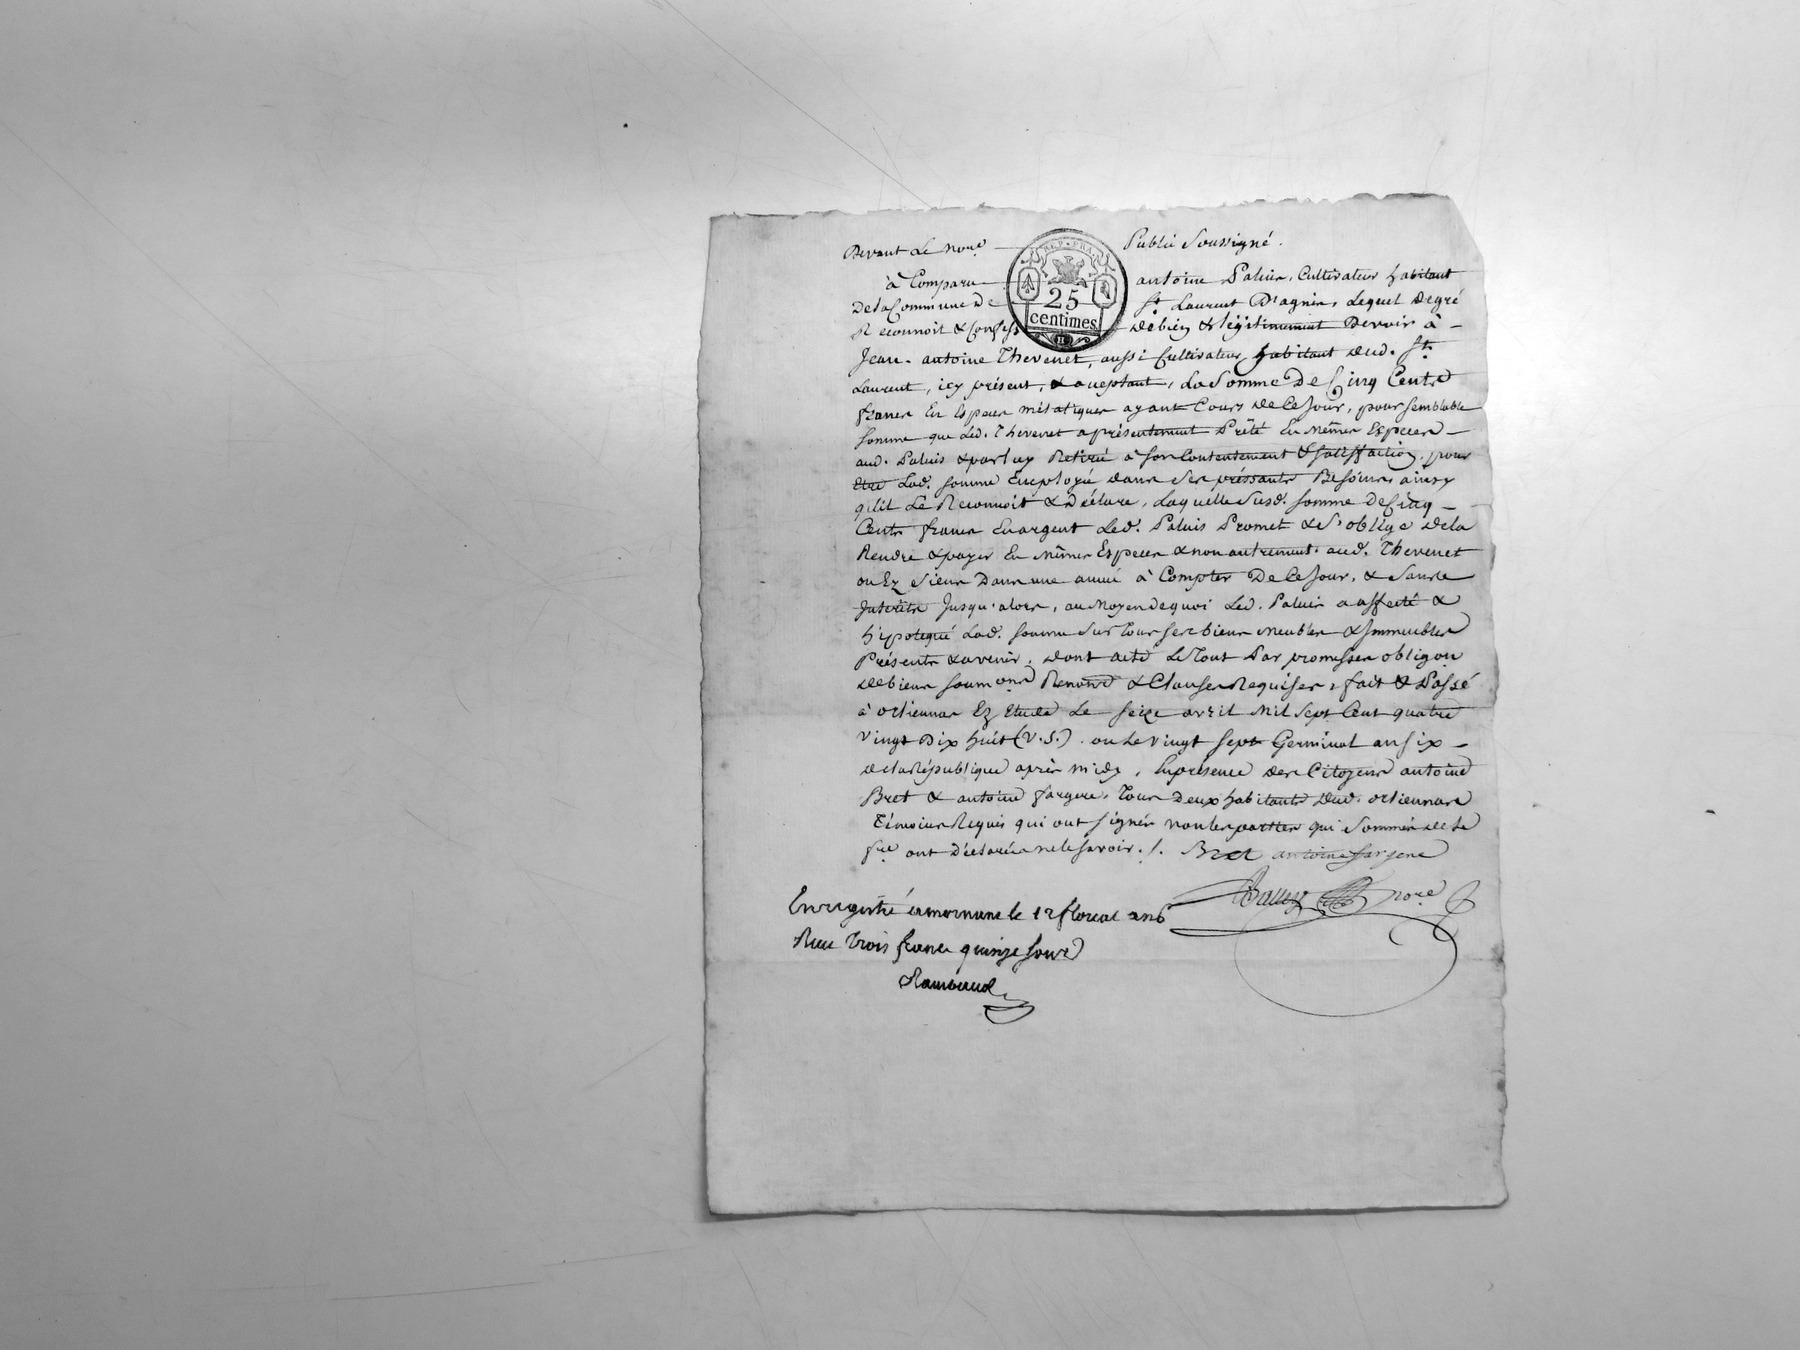 Devant Le No.re Public Soussigné.
REP. FRA.
25
centimes
à Comparu antoine Paluis, Cultivateur habitant
De la Commune De St. Laurent D'agnis, Lequel de gré
Reconnoit & Confesse debien & légitimement Devoir à
Jean-antoine Thevenet, aussi Cultivateur habitant dud. St.
Laurent, icy présent, & aceptant, La Somme De Cinq Cents
francs En Especes métaliques ayant Cours de Ce Jour, pour semblable
somme que Led. Thevenet a présentement Prêté En Mêmes Especes
aud. Paluis & par luy Retiré à son Contentement & satisffaction, pour
Etre Lad. somme Employée dans ses préssants Besoins, ainsy
qu'il Le Reconnoit & Déclare, Laquelle Susd. somme De Cinq
Cents francs En argent Led. Paluis Promet & s'oblige de la
Rendre & payer En Mêmes Especes & non autrement aud. Thevenet
ou Ez siens Dans une année à Compter De Ce Jour, & Sans
Intérêts Jusqu'alors, au Moyen de quoi Led. Paluis a affecté &
h'ipotequé Lad. somme sur Tous ses biens Meubles & Immeubles
Présents & avenir, dont acte Le Tout Par promesses obligon
de biens soumons Renond & Clauses Requises, fait & Passé
à orliennas Ez Etude Le seize avril Mil Sept Cent quatre
vingt Dix huit (V.S.) ou Le vingt sept Germinal an six
de la République après midy, En présence des Citoyens antoine
Bret & antoine fargere, Tous Deux habitants dud. orliennas
Témoins Requis qui ont signés non les parties qui sommés de le
fre ont Déclarés ne le savoir ./. Bret antoine fargere
No.re
Enregistré à mornant le 12 floreal an 6
Reçu Trois francs quinze sous
Rambaud